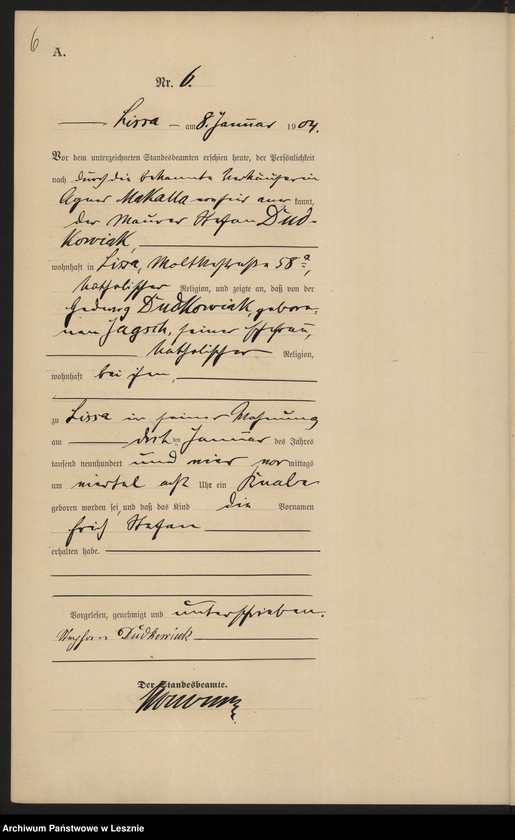 6
A.
Nr. 6.
Lissa am 8. Januar 1904.
Vor dem unterzeichneten Standesbeamten erschien heute, der Persönlichkeit
nach durch die bekannte Verkäuferin
Agnes Makalla aner kannt,
der Maurer Stefan Dud-
kowiak,
wohnhaft in Lissa, Moltkestraße 58a,
katholischer Religion, und zeigte an, daß von der
Hedwig Dudkowiak, gebore-
nen Jagsch, seiner Ehefrau,
katholischer Religion,
wohnhaft bei ihm,
zu Lissa in seiner Wohnung
am ten Januar des Jahres
tausend neunhundert und vier vor mittags
um viertel acht Uhr ein Knabe
geboren worden sei, und daß das Kind die Vornamen
Erich Stefan
erhalten habe.
Vorgelesen, genehmigt und unterschrieben.
Stephan Dudkowiak
Der Standesbeamte.
Archiwum Państwowe w Lesznie